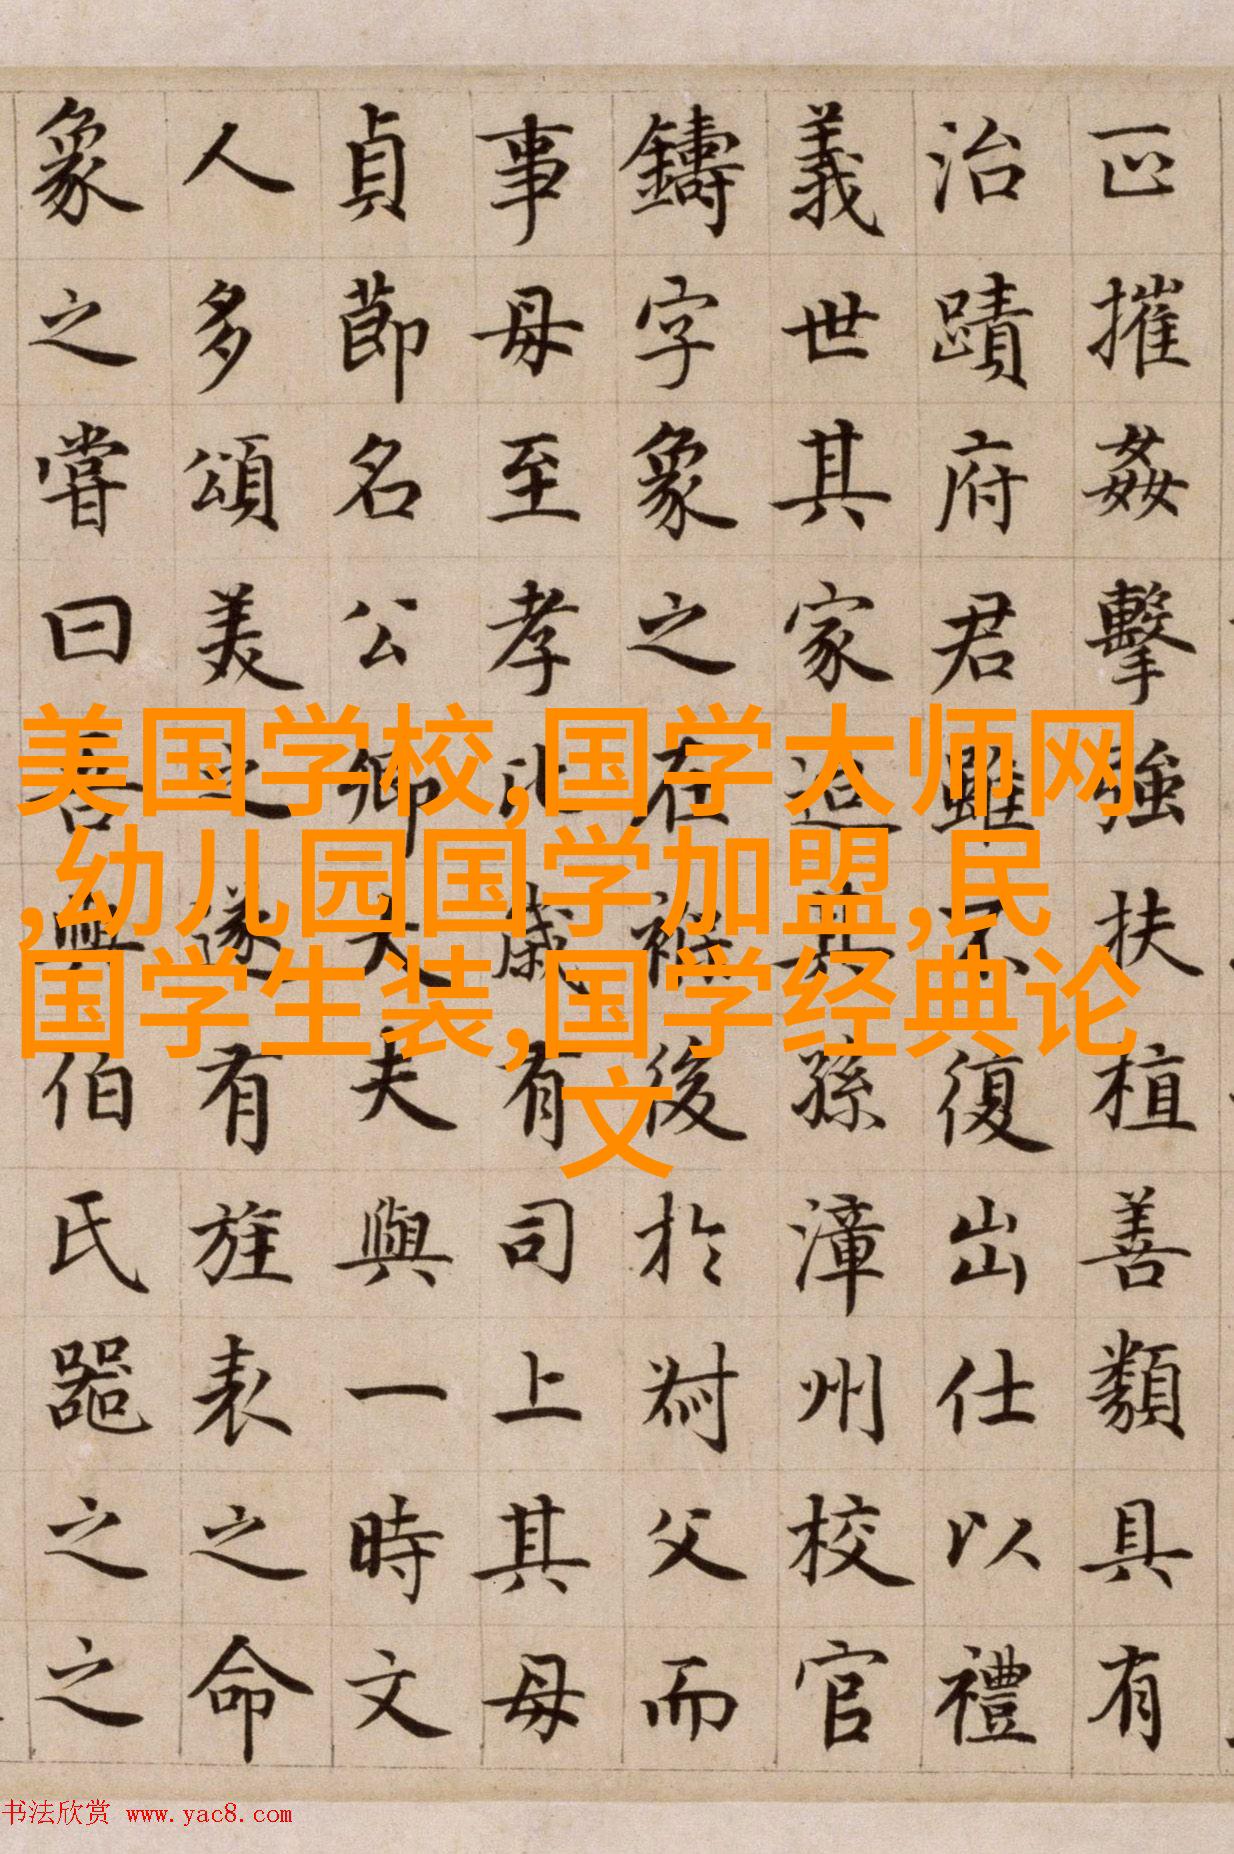 摧姦擊強扶植善類具有
治蹟府君雖不復出仕以禮
義世其家迨其孫漳州校官
鑄字象之在後於父而
事母至孝比歲有司上其母
貞節名公卿大夫與一時文
人多頌美之遂有旌表之命
象之嘗曰吾與伯氏器之之
美国学校,国学大师网
,幼儿园国学加盟,民
国学生装,国学经典论
文
书法欣赏 www.yac8.com